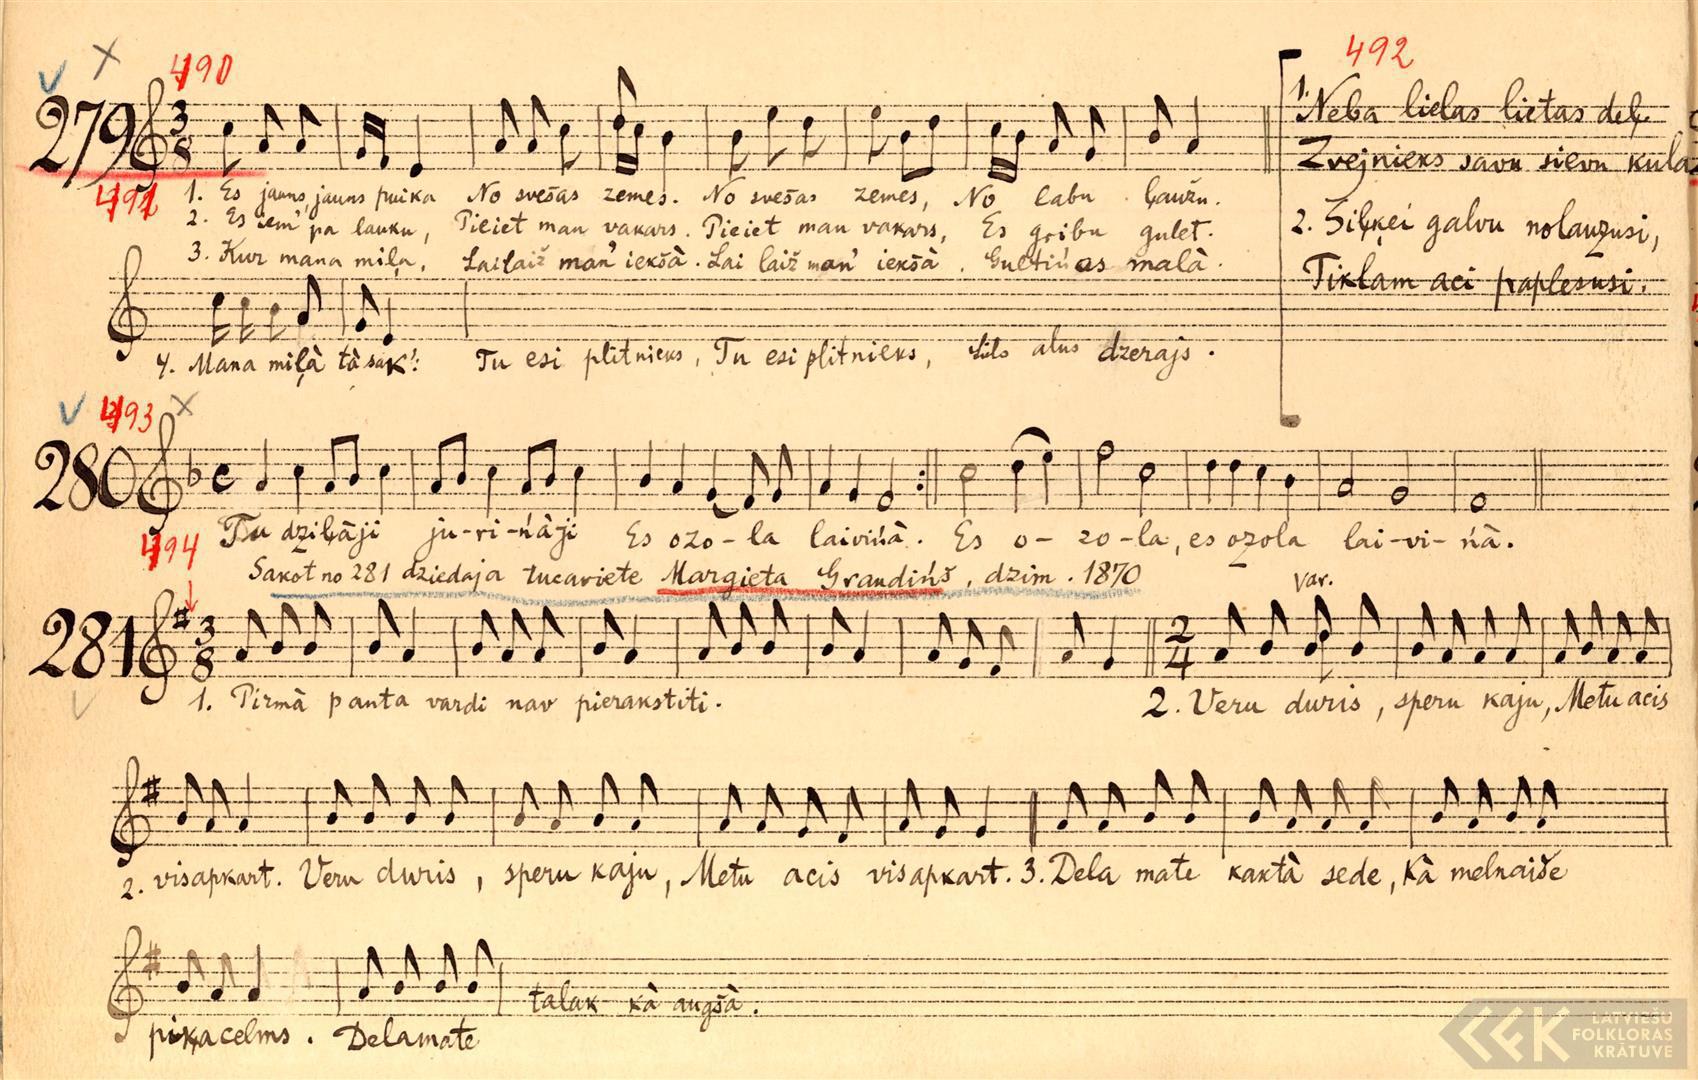 490
492
279
491
1. Es jauns, jauns puika No svešas zemes. No svešas zemes, No labu ļaužu.
2. Es iem' pa lauku, Pieiet man vakars. Pieiet man vakars, Es gribu gulet.
3. Kur mana miļa, Lai laiž man' iekšà. Lai laiž man' iekšà. Gultińas malà.
4. Mana miļà tà sak': Tu esi plitnieks, Tu esi plitnieks, alus dzerajs.
1. Neba lielas lietas deļ
Zvejnieks savu sievu kula:
2. Siļķei galvu nolauzusi,
Tiklam aci paplesusi.
493
280
Tu dziļàji ju-ri-ńàji Es ozo-la laivińà. Es o-zo-la, es ozola lai-vi-ńà.
494
Sakot no 281 dziedaja tucaviete Margieta Grandińš, dzim. 1870
Var.
281
1. Pirmà panta vardi nav pierakstiti.
2. Veru duris, speru kaju, Metu acis
2. visapkart. Veru duris, speru kaju, Metu acis visapkart. 3. Dela mate kaktà sede, Kà melnaiše
talak kà augšà.
piķacelms. Delamate
LATVIEŠU
FOLKLORAS
KRĀTUVE